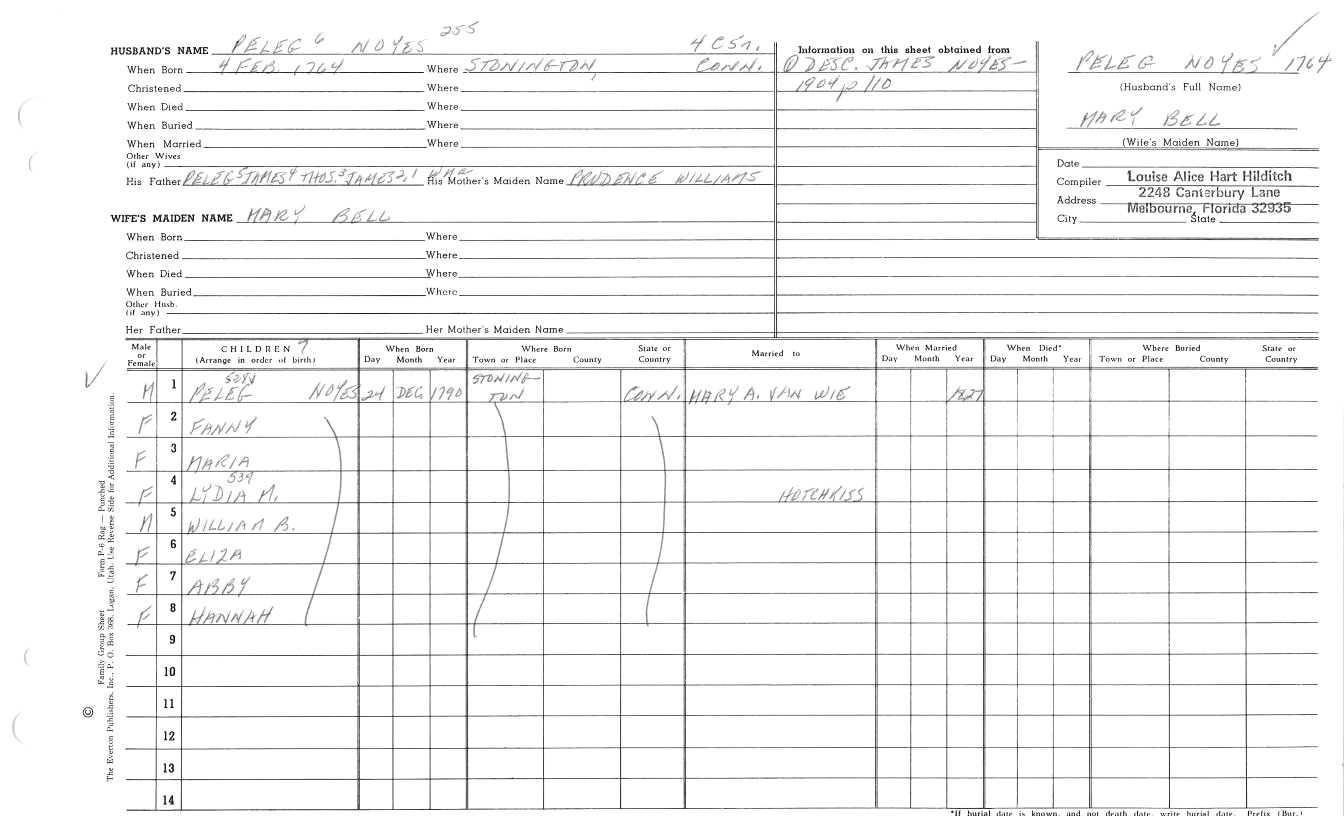 255
HUSBAND'S NAME PELEG 6 NOYES 4 C 5n.
When Born 4 FEB. 1764 Where STONINGTON, CONN.
Christened Where
When Died Where
When Buried Where
When Married Where
Other Wives
(if any)
His Father PELEG 5 JAMES 4 THOS. 3 JAMES 2, 1 His Mother's Maiden Name PRUDENCE WILLIAMS
WIFE'S MAIDEN NAME MARY BELL
When Born Where
Christened Where
When Died Where
When Buried Where
Other Husb.
(if any)
Her Father Her Mother's Maiden Name
Information on this sheet obtained from
① DESC. JAMES NOYES-
1904 p 110
PELEG NOYES 1764
(Husband's Full Name)
MARY BELL
(Wife's Maiden Name)
Date
Compiler Louise Alice Hart Hilditch
Address 2248 Canterbury Lane
Melbourne, Florida 32935
City State
Male or Female CHILDREN 7 (Arrange in order of birth) When Born Day Month Year Where Born Town or Place County State or Country Married to When Married Day Month Year When Died* Day Month Year Where Buried Town or Place County State or Country
M 1 PELEG NOYES 24 DEC. 1790 STONINGTON CONN. MARY A. VAN WIE 1827
F 2 FANNY
F 3 MARIA
539
F 4 LYDIA M. HOTCHKISS
M 5 WILLIAM B.
F 6 ELIZA
F 7 ABBY
F 8 HANNAH
9
10
11
12
13
14
*If burial date is known, and not death date, write burial date. Prefix (Bur.)
Family Group Sheet Form P-6 Rag — Punched
© The Everton Publishers, Inc., P. O. Box 368, Logan, Utah. Use Reverse Side for Additional Information.